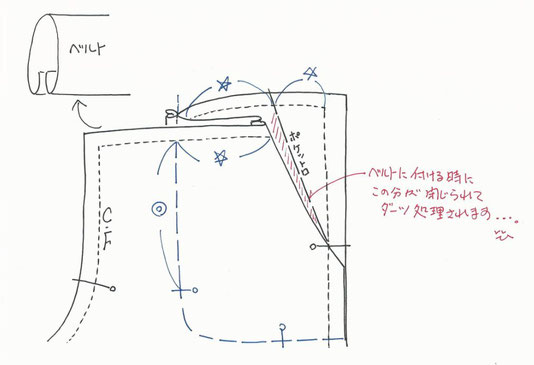 ベルト
ポケット口
C.F
ベルトに付ける時に
この分が閉じられて
ダーツ処理されます....。